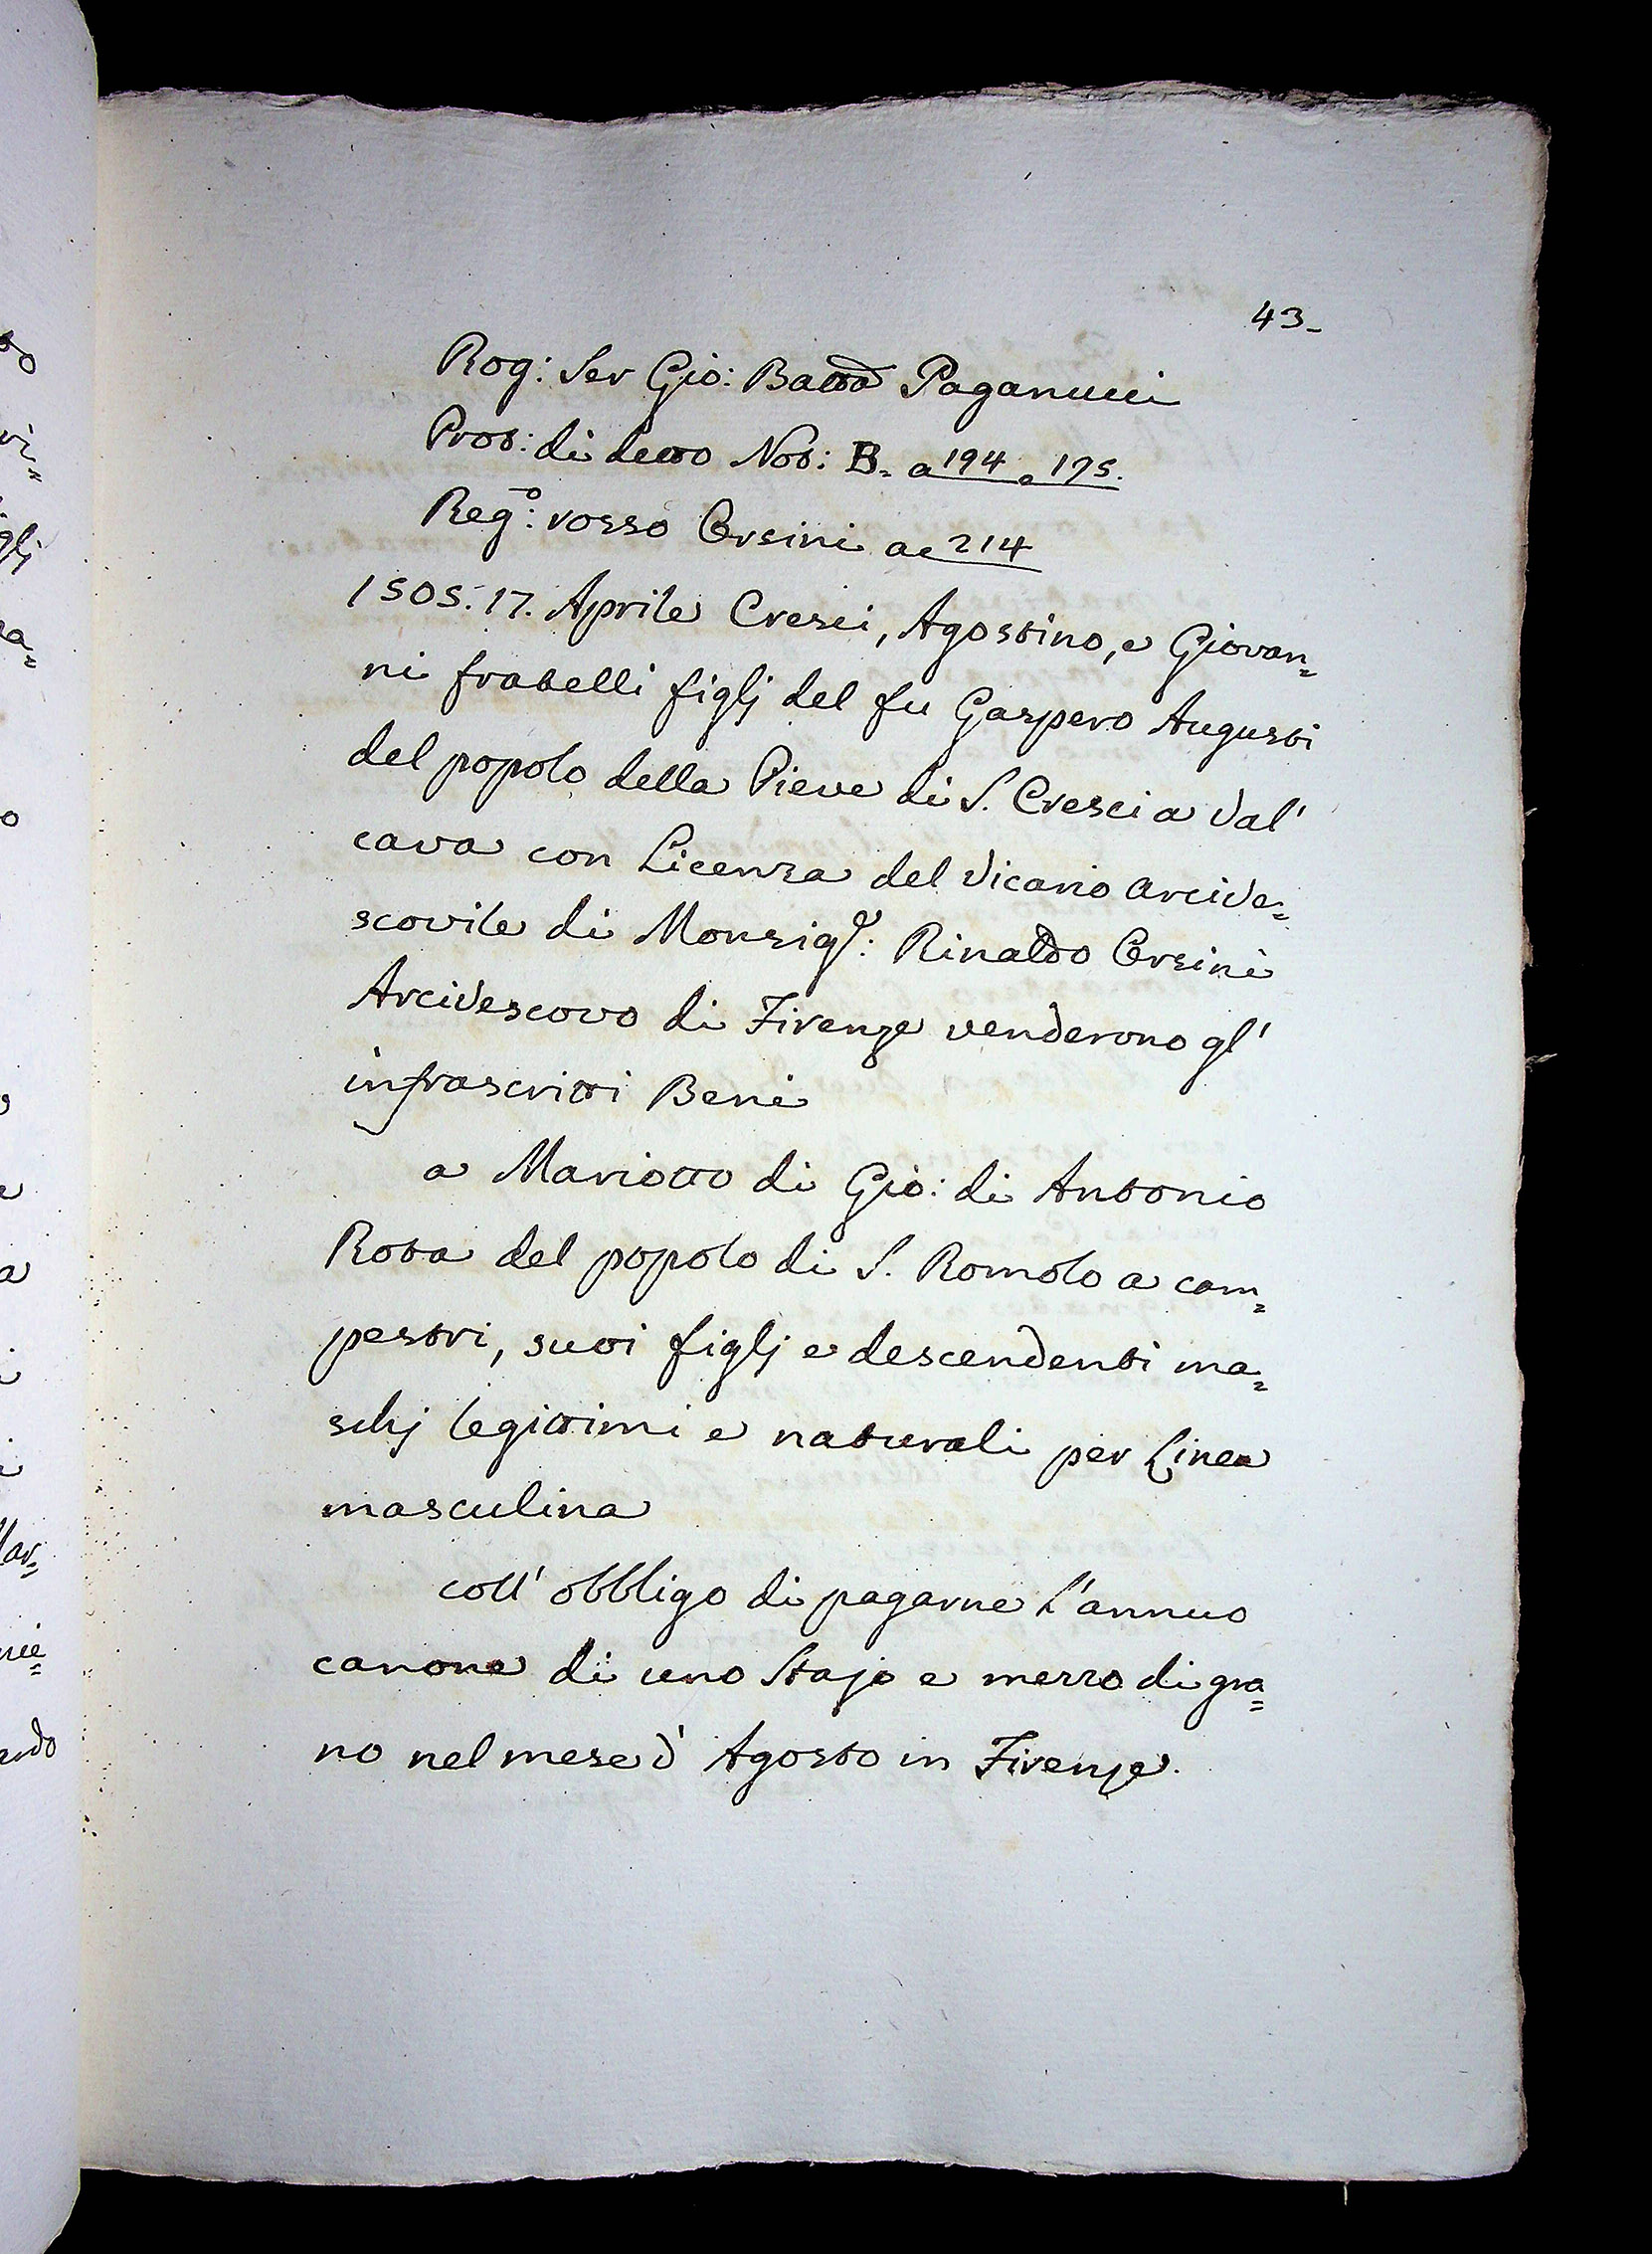 43_
Rog: Ser Gio: Batta Paganucci
Prot: di detto Not: B. a 194 e 195.
Reg:º rosso Orsini a e 214
1505. 17. Aprile Cresci, Agostino, e Giovan=
ni fratelli figlj del fu Gaspero Augusti
del popolo della Pieve di S. Cresci a Val'
cava con Licenza del Vicario Arcive=
scovile di Monsigr: Rinaldo Orsini
Arcivescovo di Firenze venderono gl'
infrascritti Beni
a Mariotto di Gio: di Antonio
Rota del popolo di S. Romolo a cam=
pestri, suoi figlj e descendenti ma=
schj legittimi e naturali per Linea
masculina
coll' obbligo di pagarne L'annuo
canone di uno Stajo e mezzo di gra=
no nel mese d' Agosto in Firenze.